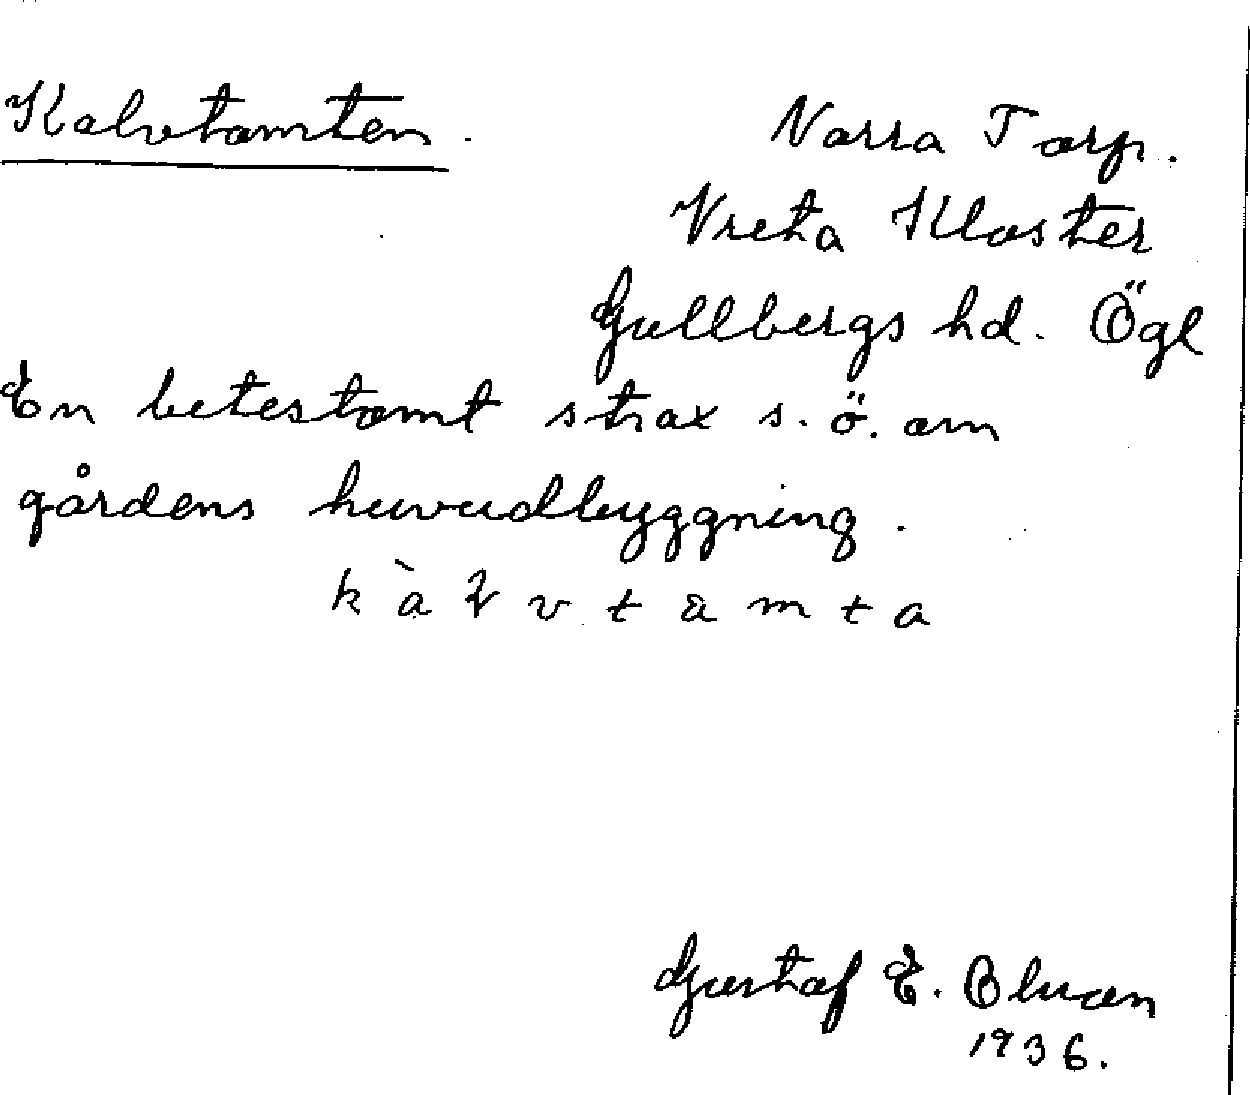 Kalvtomten.
Norra Torp.
Vreta Kloster
Gullbergs hd. Ögl
En betestomt strax s. ö. om
gårdens huvudbyggning.
k à ɫ v t å m t a
Gustaf E.
1936.